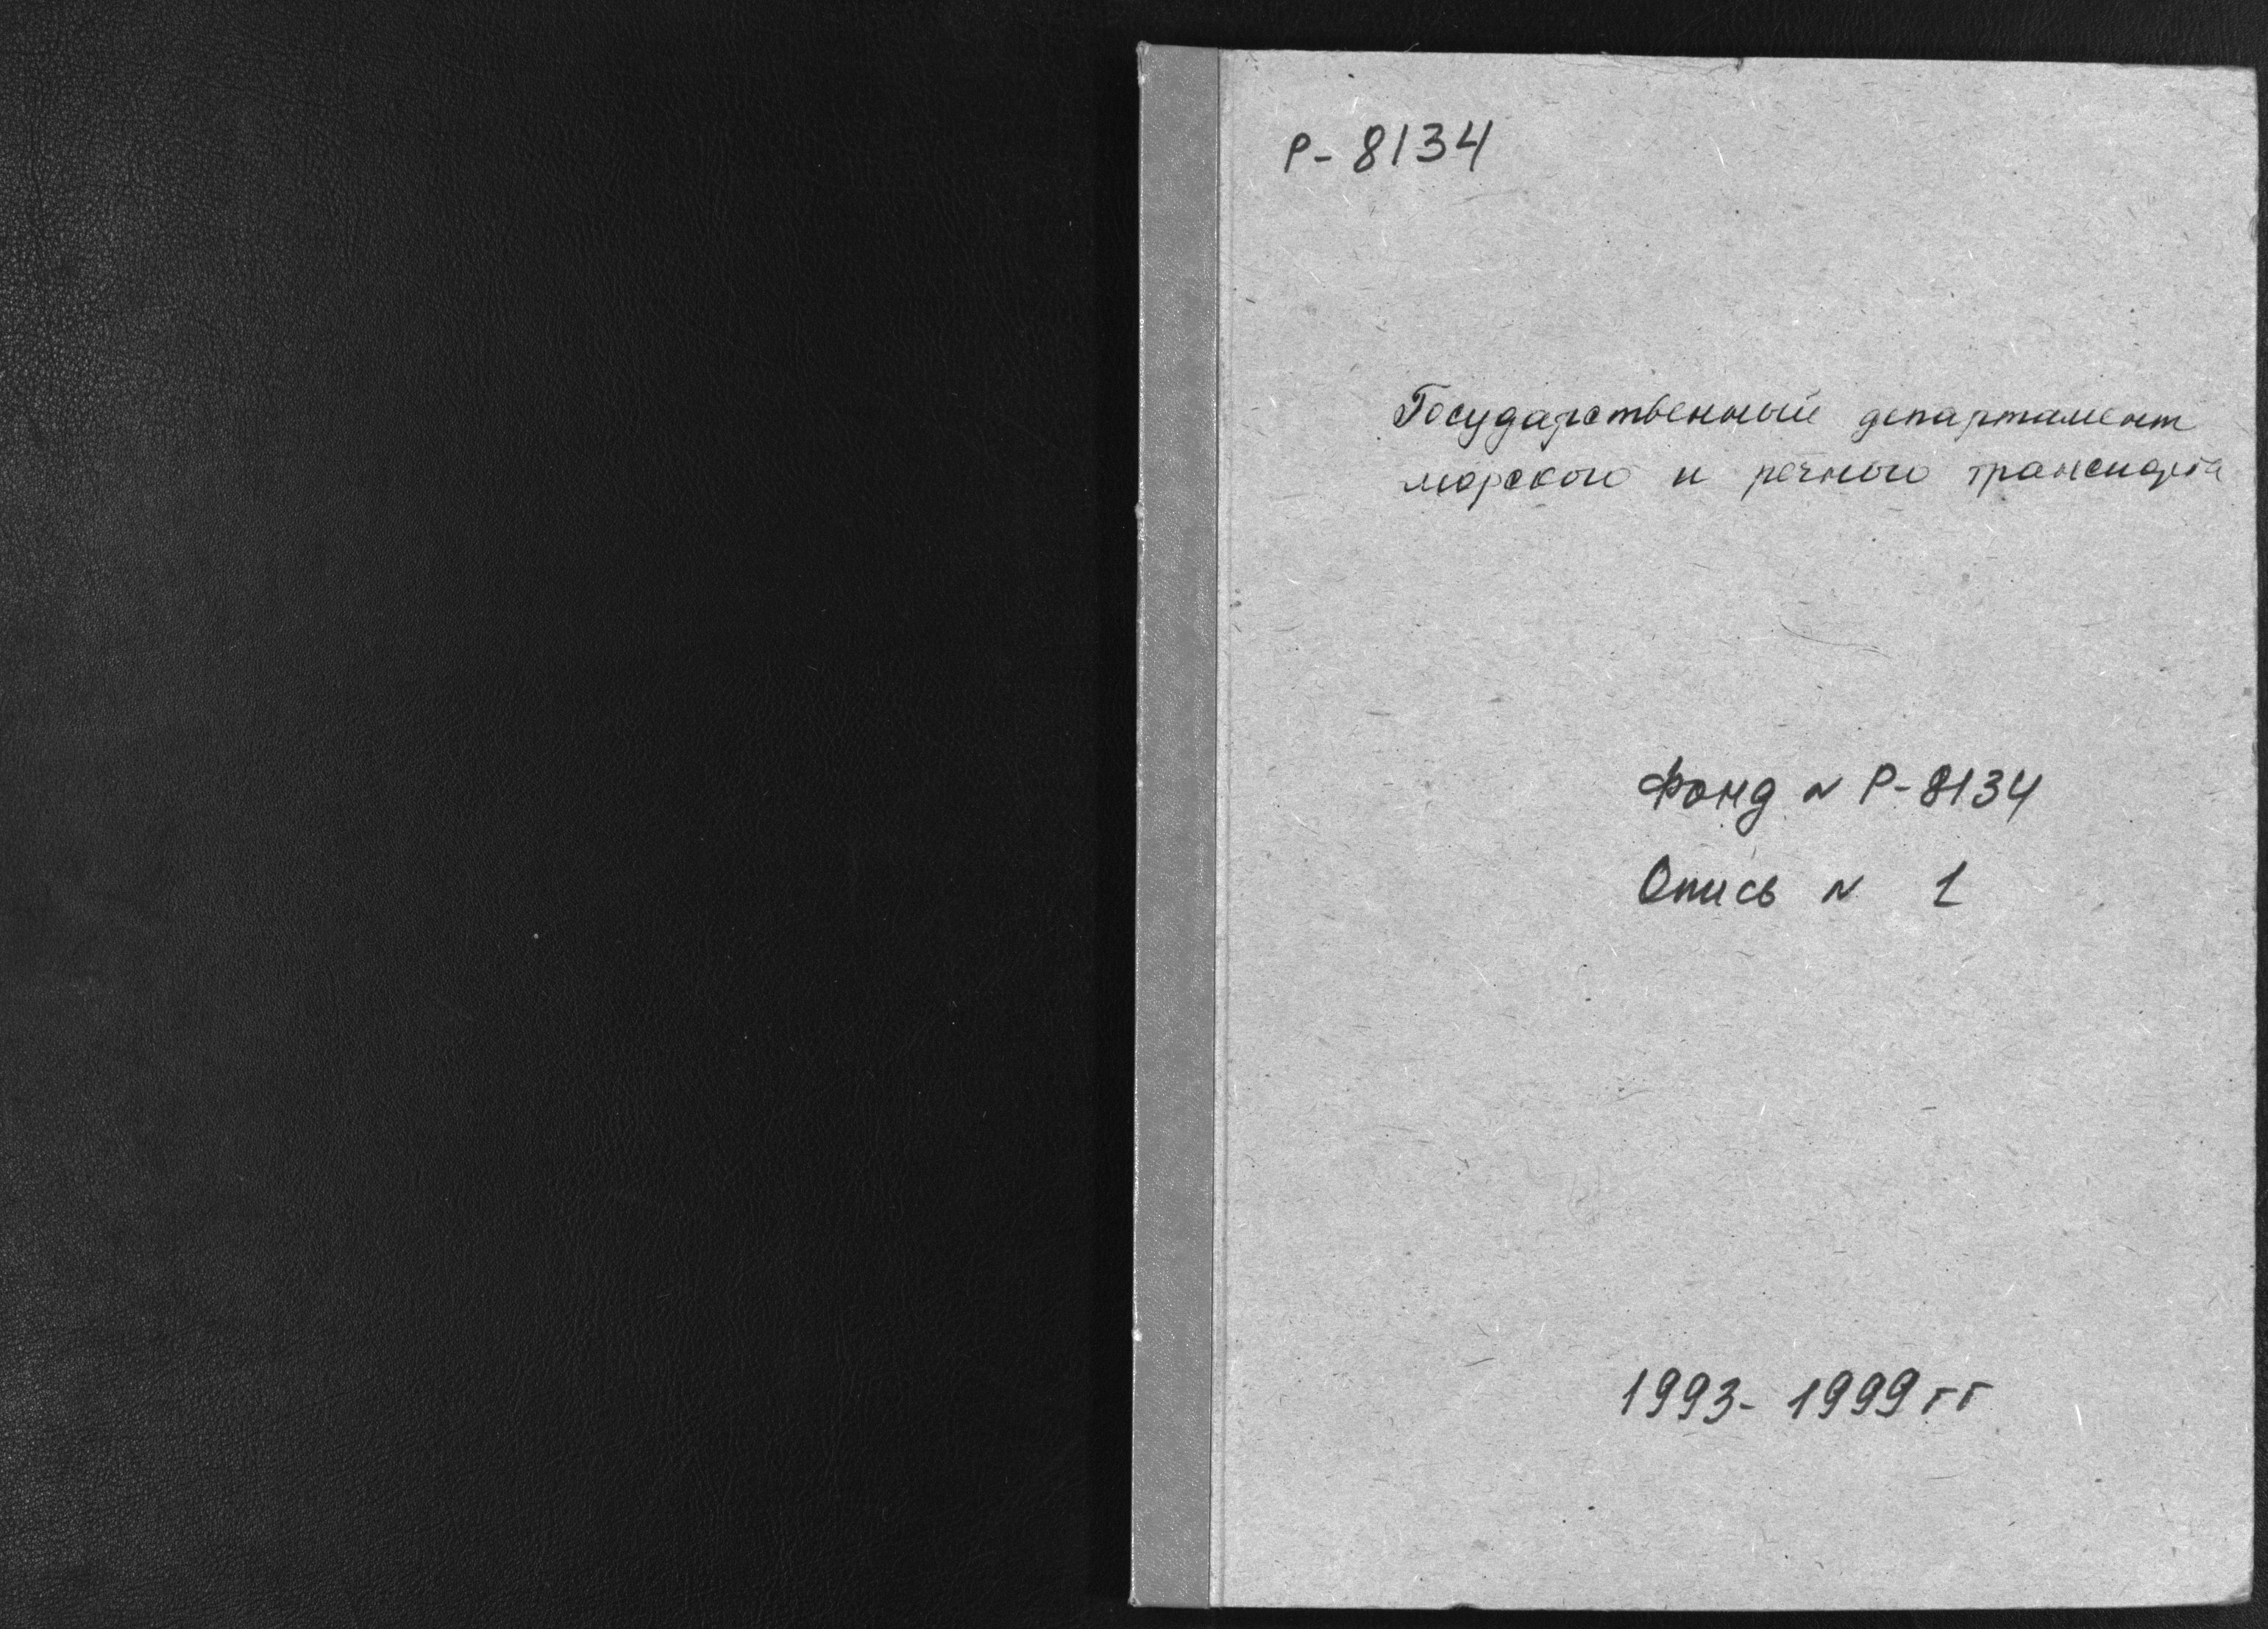 Р-8134
Государственный департамент
морского и речного транспорта
Фонд № Р-8134
Опись № 1
1993-1999 гг